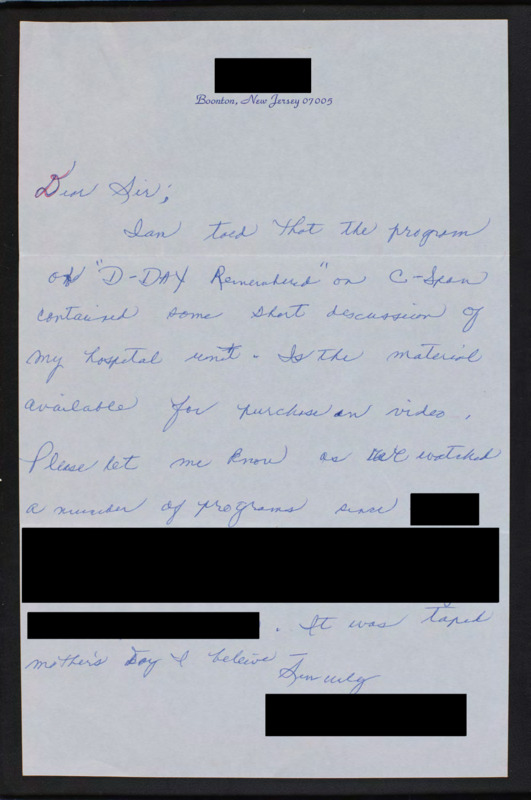 Boonton, New Jersey 07005
Dear Sir;
I am told that the program
on "D-DAY Remembered" on C-Span
contained some short discussion of
my hospital unit. Is the material
available for purchase on video.
Please let me know as we watched
a number of programs since
. It was taped
mother's Day I beleive
Sincerely